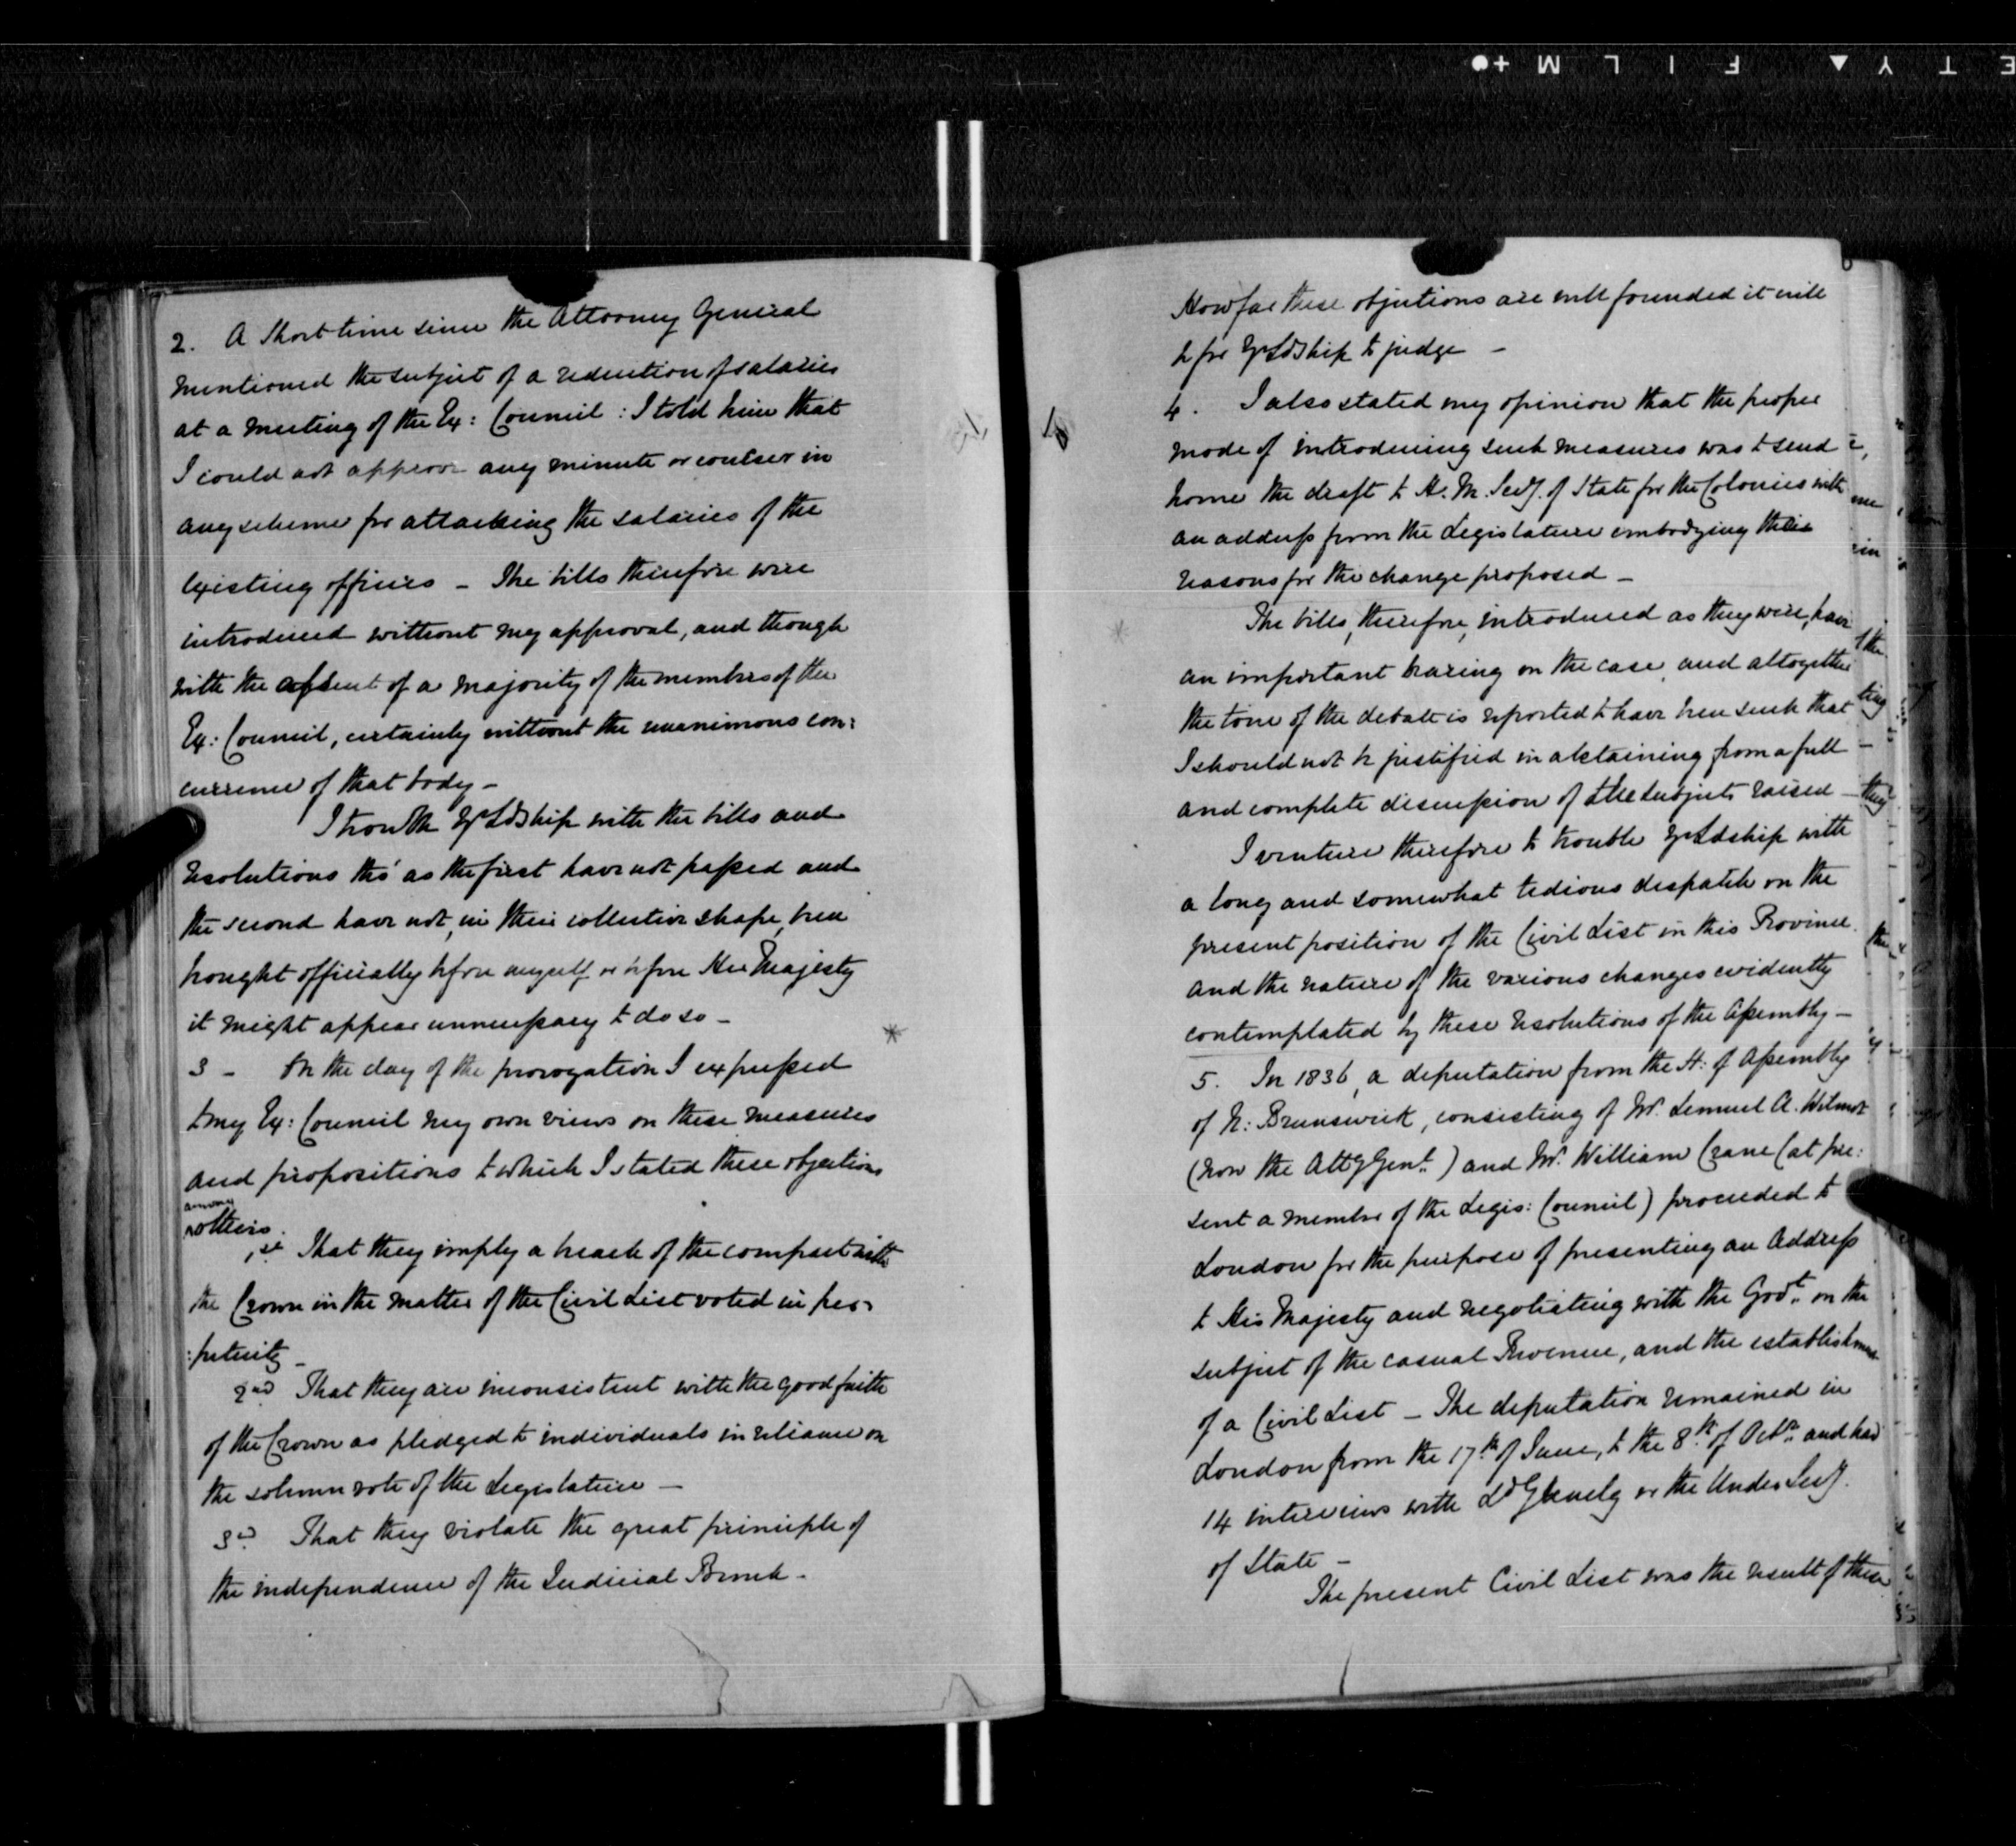 2. A Short time since the Attorney General
mentioned the subject of a reduction of salaries
at a meeting of the Ex: Council: I told him that
I could not approve any minute or concur in
any scheme for attacking the salaries of the
existing officers – The bills therefore were
introduced without my approval, and though
with the assent of a majority of the members of the
Ex: Council, certainly without the unanimous con:
currence of that body –
I trouble Yr Ldship with the bills and
resolutions tho' as the first have not passed and
the second have not, in their collective shape, been
brought officially before myself or before Her Majesty
it might appear unnecessary to do so –
3 – On the day of the prorogation I expressed
to my Ex: Council my own views on these measures
and propositions to which I stated these objections
among
others.
1st That they imply a breach of the compact with
the Crown in the matter of the Civil List voted in per:
:petuity –
2nd That they are inconsistent with the good faith
of the Crown as pledged to individuals in reliance on
the solemn vote of the Legislature –
3d That they violate the great principle of
the independence of the Judicial Bench –
How far these objections are well founded it will
be for Yr Ldship to judge –
4. I also stated my opinion that the proper
mode of introducing such measures was to send
home the draft to H. M. Secy. of State for the Colonies with
an address from the Legislature embodying their
reasons for the change proposed –
The bills, therefore, introduced as they were, have
an important bearing on the case, and altogether
the tone of the debate is reported to have been such that
I should not be justified in abstaining from a full
and complete discussion of the subjects raised –
I venture therefore to trouble Yr Ldship with
a long and somewhat tedious despatch on the
present position of the Civil List in this Province
and the nature of the various changes evidently
contemplated by these resolutions of the Assembly –
5. In 1836, a deputation from the H: of Assembly
of N: Brunswick, consisting of Mr. Lemuel A. Wilmot
(now the Atty Genl.) and Mr. William Crane (at pre:
sent a member of the Legis: Council) proceeded to
London for the purpose of presenting an Address
to His Majesty and negotiating with the Govt. on the
subject of the casual Revenue, and the establishment
of a Civil List – The deputation remained in
London from the 17th of June, to the 8th of Octr. and had
14 interviews with Ld Glenelg or the Under Secy.
of State –
The present Civil List was the result of these